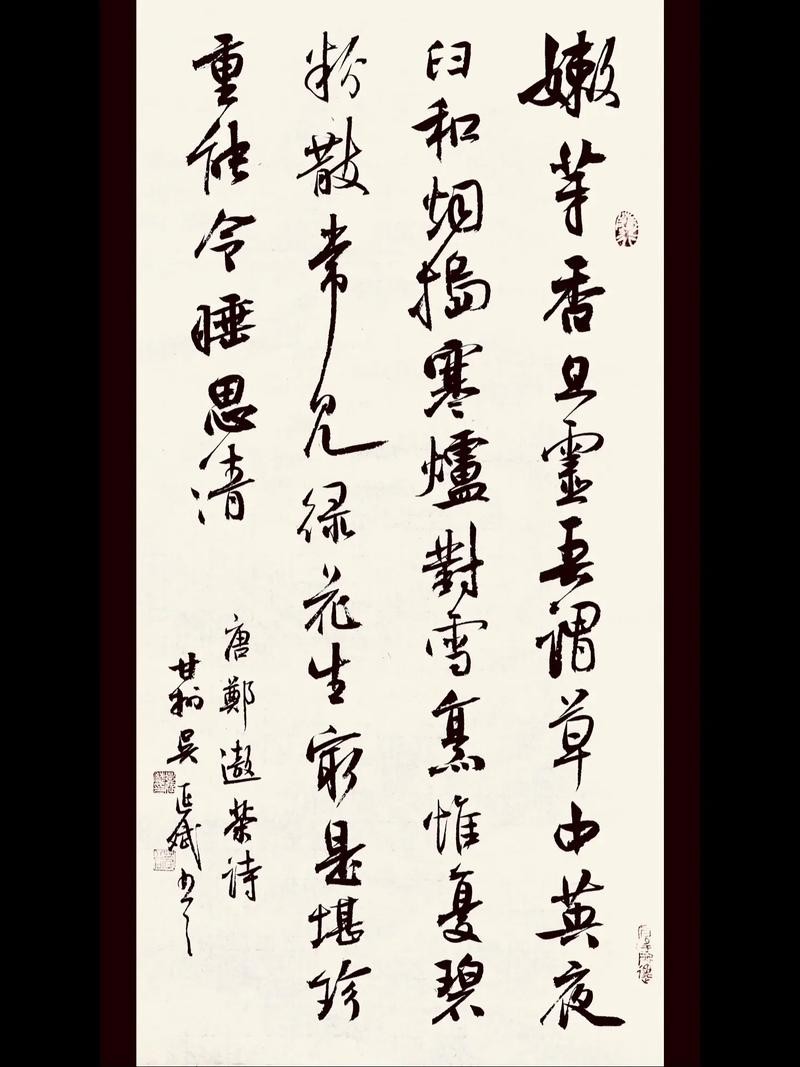 嫩芽香且靈吾謂草中英夜
臼和烟搗寒爐對雪烹惟憂碧
粉散常見绿花生最是堪珍
重能令睡思清
唐鄭遨茶诗
甘州吴斌书